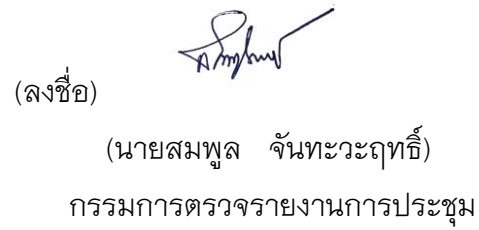 (ลงชื่อ)
(นายสมพูล จันทะวะฤทธิ์)
กรรมการตรวจรายงานการประชุม